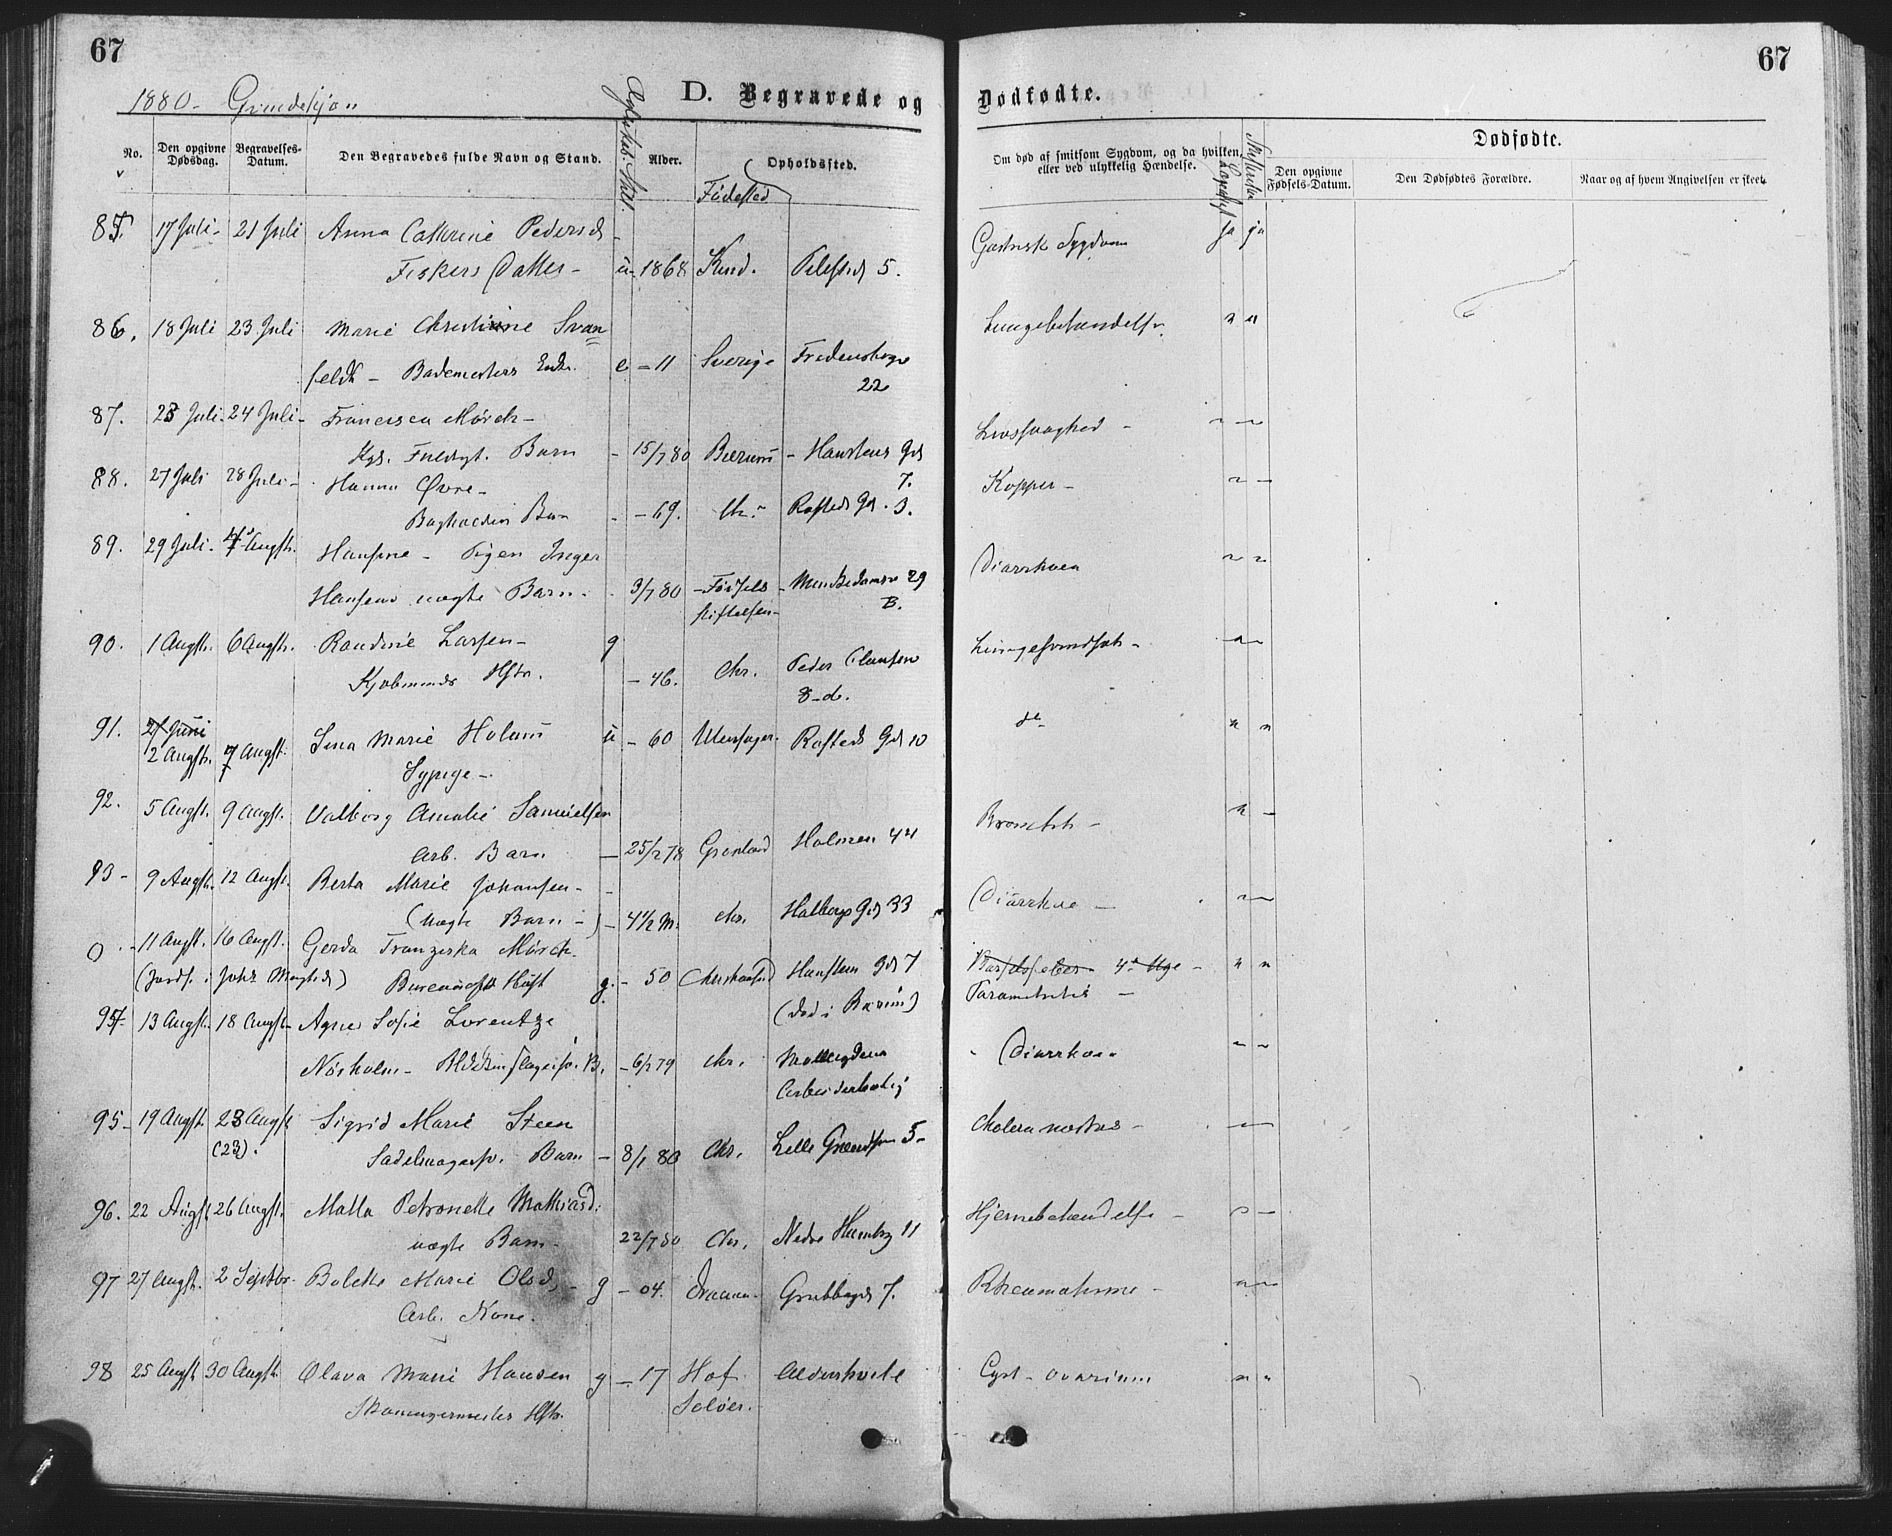 67
67
1880 - Kvindekjøn
D. Begravede og Dødfødte.
No.
Den opgivne Dødsdag.
Begravelses-Datum.
Den Begravedes fulde Navn og Stand.
Alder.
Opholdssted.
Fødested
Om død af smitsom Sygdom, og da hvilken, eller ved ulykkelig Hændelse.
Dødfødte.
Den opgivne Fødsels-Datum.
Den Dødfødtes Forældre.
Naar og af hvem Angivelsen er skeet.
85. 17 Juli - 21 Juli Anna Cathrine Pedersd. Gastrisk Sygdom ja ja
Fiskers Datter - u - 1868 Pilestd 5.
86. 18 Juli 23 Juli Marie Christine Svan= Lungebetændelse " "
feldt - Bademesters Enke. e - 11 Sverige Fredensborgv
22
87. 23 Juli - 24 Juli - Francisca Mørch - Livssvaghed -
Fuldmgt. Barn - 15/7 80 Bærum - Haustens Gd
7.
88. 27 Juli 28 Juli - Hanna Øvre - Kopper -
Barn - 69. Chr. Rosteds Gd. 3.
89. 29 Juli - Augst. Hansine - Pigen Inger Diarrhoea
Hansens uægte Barn - 3/7 80 - Fødsels - Munkedamsv 29
stiftelsen - B.
90. 1 Augst. 6 Augst. Randine Larsen - g
Kjøbmands Hstr. - 46. Chr. Peder Clausen
8 - d.
91. 27 Juni
2 Augst. 7 Augst. Lina Marie Holum u - 60 Ullensager. Rosteds Gd 10 do
Sypige -
92. 5 Augst. 9 Augst. Valborg Amalie Samuelsen Bronchit -
Arb. Barn - 25/2 78 Grønland Holmen 44
93 - 9 Augst. 12 Augst. Berta Marie Johansen - Diarrhoe -
(uægte Barn -) - 4 1/2 M. Chr. Holbergs Gd 33
0 . - 11 Augst. 16 Augst. Gerda Franziska Mørch. Barselfeber - 4de Uge -
(Jordf. i Johs Menighed) g. - 50 Christiansund Haustens Gd 7 Parametritis -
(død i Bærum)
94 13 Augst. 18 Augst. Agnes Sofie Lorentze Diarrhoea
Norholm - B. - 6/2 79 Chr. Møllergdens
Arbeiderbolig
95 - 19 Augst. 23 Augst Sigrid Marie Steen Cholera nostras -
(23). Sadelmagersv. Barn - 8/1 80 Chr. Lille Grændsen 5 -
96. 22 Augst 26 Augst. Malla Petronelle Mathiasd. Hjernebetændelse -
uægte Barn - 22/7 80 Chr. Nedre Hambg 11
97 27 Augst. 2 Septbr. Bolette Marie Olsd. - g - 04. Dramn. Grubbegd 7. Rheumatisme -
Arb. Kone.
98 25 Augst 30 Augst. Olava Marie Hansen g - 17 Hof Aldershvile Cyst - ovarium
Skomagermester Hstr. Solør.